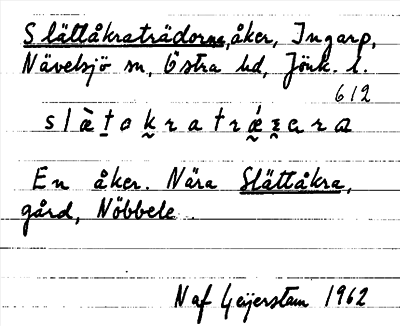 Slättåkraträdorna, åker, Ingarp,
Nävelsjö sn, Östra hd, Jönk. l.
612
slæ̀takratrǽɛara
En åker. Nära Slättåkra,
gård, Nöbbele.
N af Geijerstam 1962